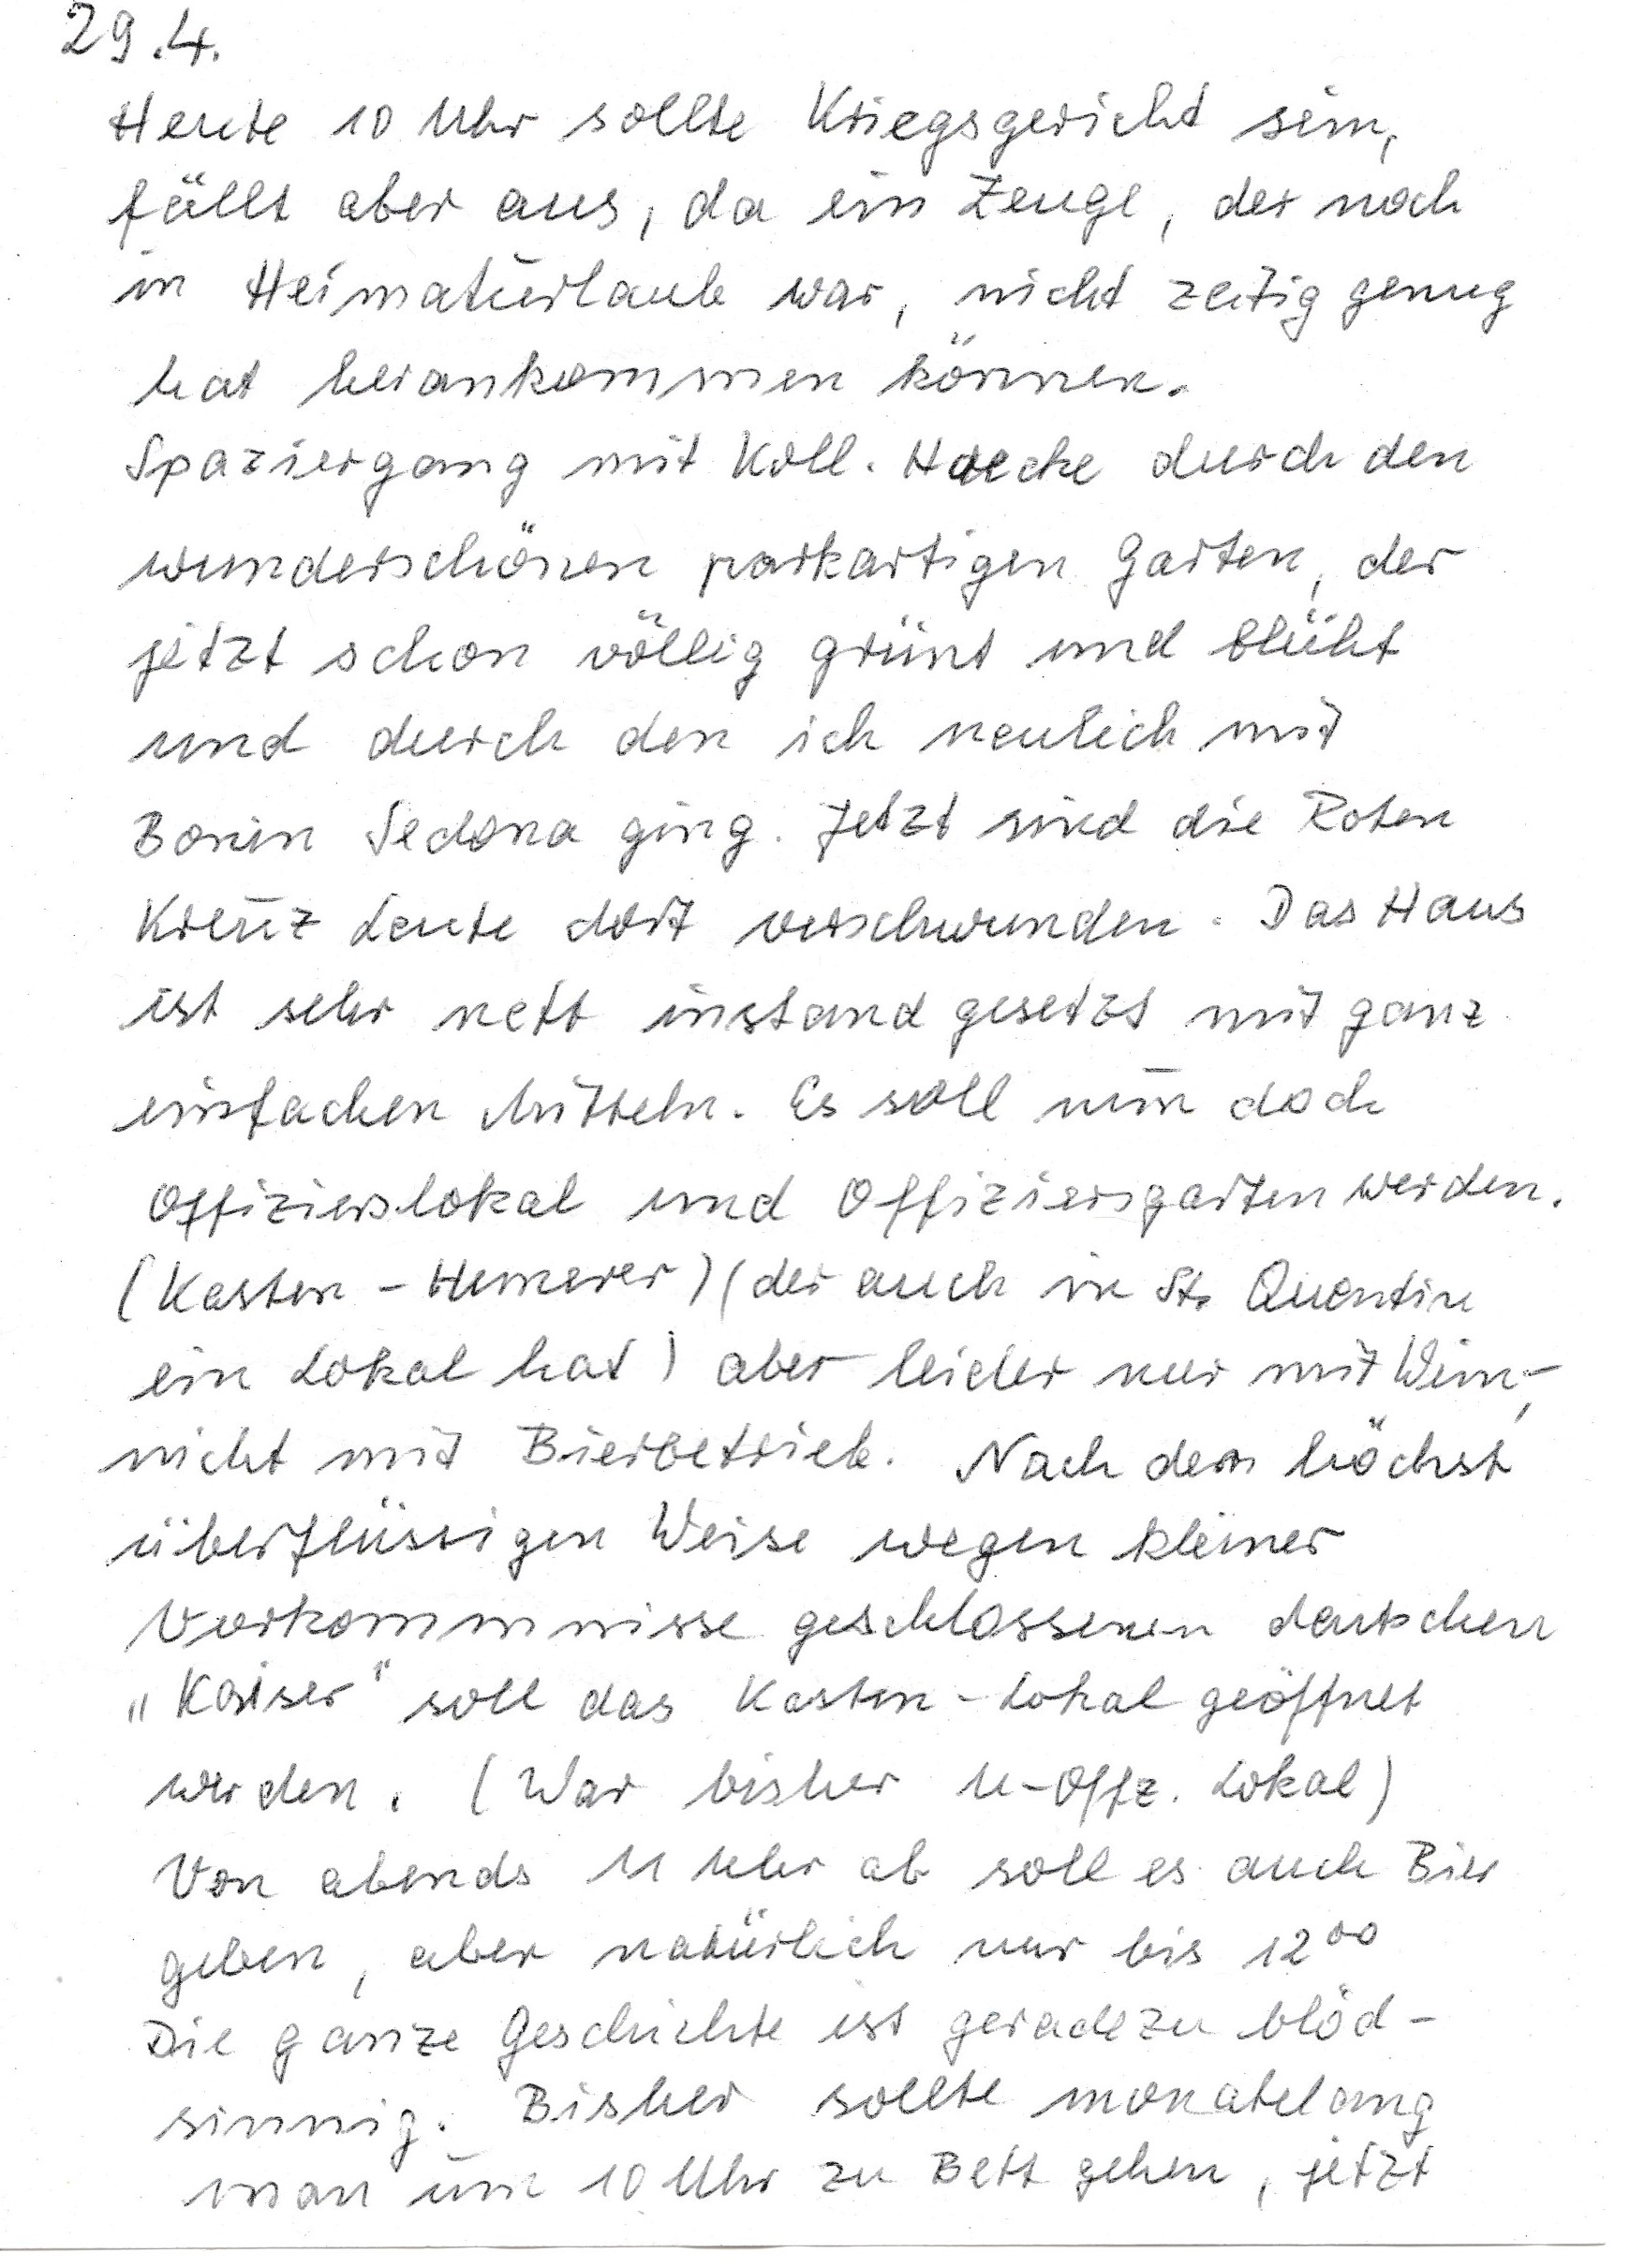 29.4.
Heute 10 Uhr sollte Kriegsgericht sein,
fällt aber aus, da ein Zeuge, der noch
in Heimaturlaub war, nicht zeitig genug
hat herankommen können.
Spaziergang mit Koll. Haecke durch den
wunderschönen parkartigen Garten, der
jetzt schon völlig grünt und blüht
und durch den ich neulich mit
Bonin Sedona ging. Jetzt sind die Roten
Kreuz Leute dort verschwunden. Das Haus
ist sehr nett instand gesetzt mit ganz
einfachen Mitteln. Es soll nun doch
Offizierslokal und Offiziersgarten werden.
(Kasten - ) (der auch in St. Quentin
ein Lokal hat) aber leider nur mit Wein-,
nicht mit Bierbetrieb. Nach dem höchst
überflüssigen Weise wegen kleiner
Vorkommnisse geschlossenen deutschen
„Kaiser" soll das Kasten-Lokal geöffnet
werden. (War bisher U-Offz. Lokal)
Von abends 11 Uhr ab soll es auch Bier
geben, aber natürlich nur bis 12⁰⁰
Die ganze Geschichte ist geradezu blöd-
sinnig. Bisher sollte monatelang
man um 10 Uhr zu Bett gehen, jetzt